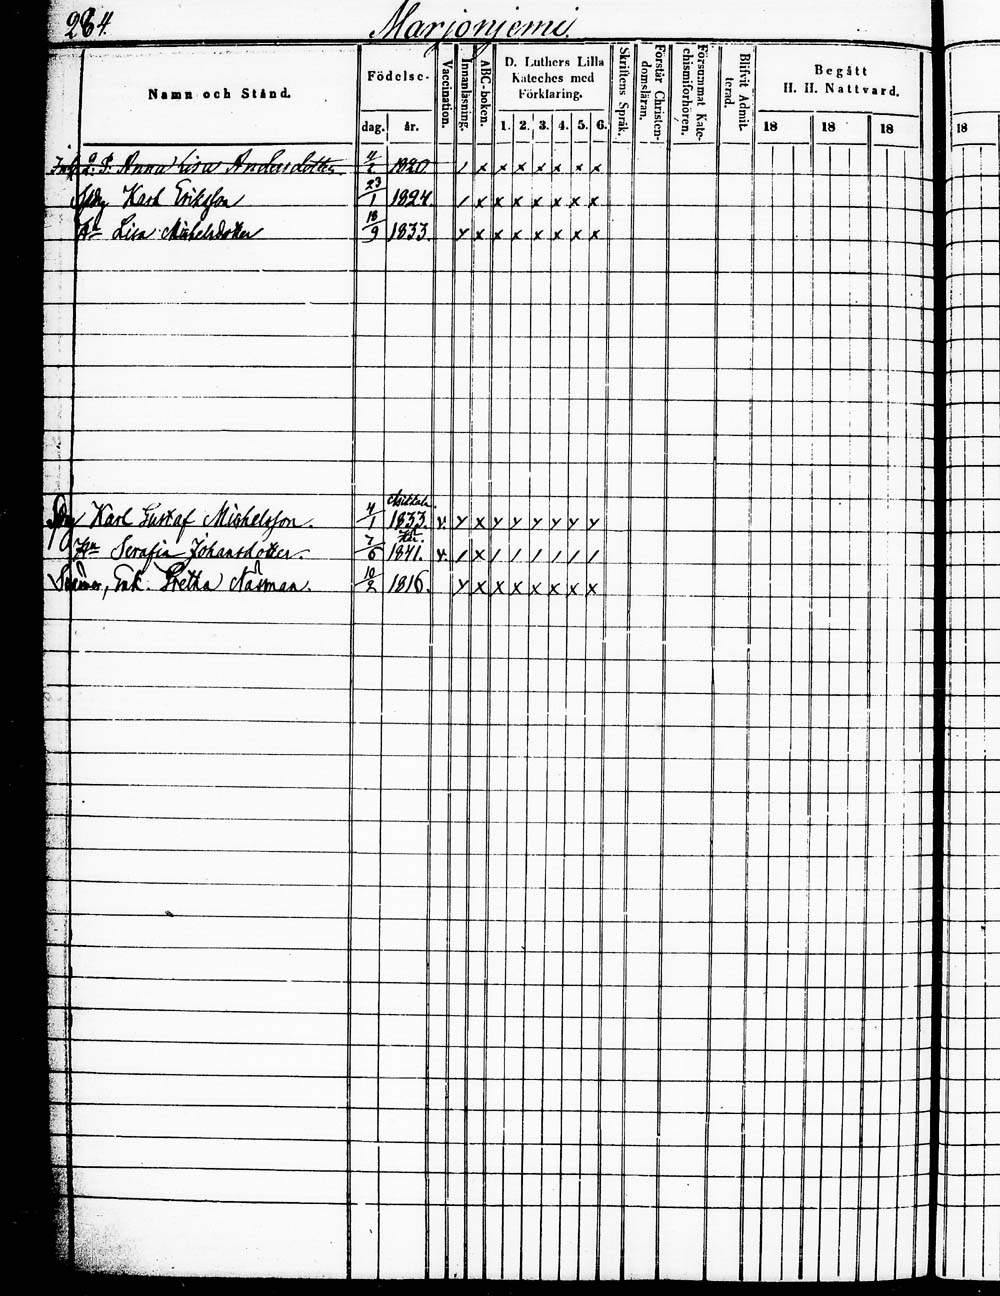 264.
Marjonjemi.
Namn och Stånd.
Födelse-
dag. år.
Vaccination.
Innanläsning.
ABC-boken.
D. Luthers Lilla
Kateches med
Förklaring.
1. 2. 3. 4. 5. 6.
Skriftens Språk.
Förstår Christen-
domsläran.
Försummat Kate-
chismiförhören.
Blifvit Admit-
terad.
Begått
H. H. Nattvard.
18 18 18
18
Anna Lisa Andersdotter 4/2 1820. / x x x x x x x
Karl Eriksson 23/1 1824. / x x x x x x x
Hu Lisa Michelsdotter 18/9 1833. y x x x x x x x
Karl Gustaf Michelsson. 4/1 1833. v. y x y y y y y y
Hu Serafia Johansdotter. 7/6 1841. v. / x / / / / / /
Enk. Gretha Näsman. 10/2 1816. y x x x x x x x